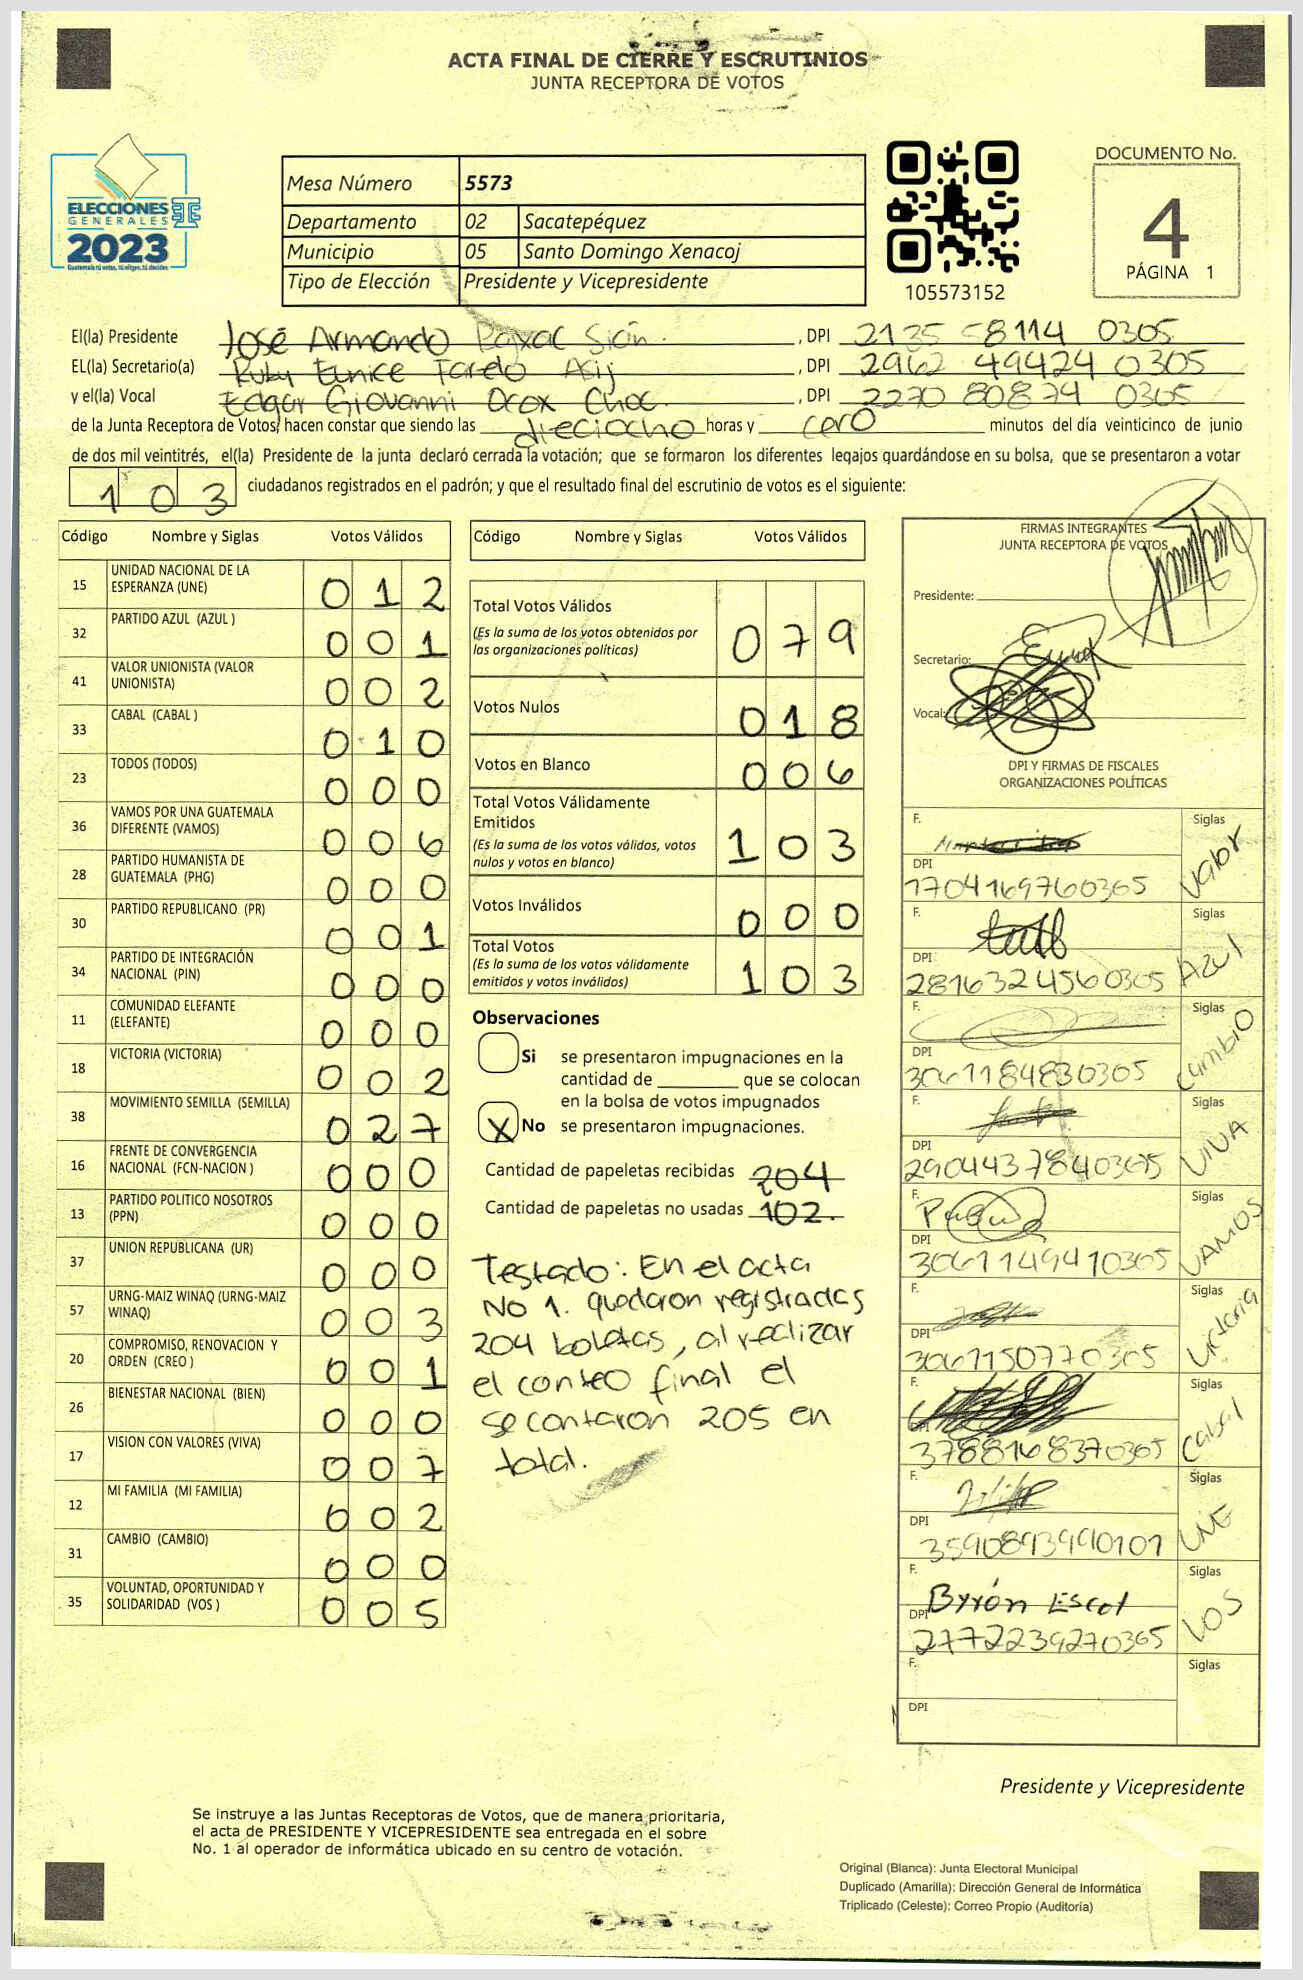 ACTA FINAL DE CIERRE Y ESCRUTINIOS
JUNTA RECEPTORA DE VOTOS
ELECCIONES
GENERALES
2023
Guatemala tú votas, tú eliges, tú decides
Mesa Número 5573
Departamento 02 Sacatepéquez
Municipio 05 Santo Domingo Xenacoj
Tipo de Elección Presidente y Vicepresidente
105573152
DOCUMENTO No.
4
PÁGINA 1
El(la) Presidente José Armando Sián , DPI 2135 58114 0305
EL(la) Secretario(a) Ruby Eunice Asij , DPI 2962 49424 0305
y el(la) Vocal Edgar Giovanni Orox Choc , DPI 2270 80874 0305
de la Junta Receptora de Votos, hacen constar que siendo las dieciocho horas y cero minutos del día veinticinco de junio
de dos mil veintitrés, el(la) Presidente de la junta declaró cerrada la votación; que se formaron los diferentes legajos guardándose en su bolsa, que se presentaron a votar
103 ciudadanos registrados en el padrón; y que el resultado final del escrutinio de votos es el siguiente:
Código Nombre y Siglas Votos Válidos
15 UNIDAD NACIONAL DE LA
ESPERANZA (UNE) 012
32 PARTIDO AZUL (AZUL ) 001
41 VALOR UNIONISTA (VALOR
UNIONISTA) 002
33 CABAL (CABAL ) 010
23 TODOS (TODOS) 000
36 VAMOS POR UNA GUATEMALA
DIFERENTE (VAMOS) 006
28 PARTIDO HUMANISTA DE
GUATEMALA (PHG) 000
30 PARTIDO REPUBLICANO (PR) 001
34 PARTIDO DE INTEGRACIÓN
NACIONAL (PIN) 000
11 COMUNIDAD ELEFANTE
(ELEFANTE) 000
18 VICTORIA (VICTORIA) 002
38 MOVIMIENTO SEMILLA (SEMILLA) 027
16 FRENTE DE CONVERGENCIA
NACIONAL (FCN-NACION ) 000
13 PARTIDO POLITICO NOSOTROS
(PPN) 000
37 UNION REPUBLICANA (UR) 000
57 URNG-MAIZ WINAQ (URNG-MAIZ
WINAQ) 003
20 COMPROMISO, RENOVACION Y
ORDEN (CREO ) 001
26 BIENESTAR NACIONAL (BIEN) 000
17 VISION CON VALORES (VIVA) 007
12 MI FAMILIA (MI FAMILIA) 002
31 CAMBIO (CAMBIO) 000
35 VOLUNTAD, OPORTUNIDAD Y
SOLIDARIDAD (VOS ) 005
Código Nombre y Siglas Votos Válidos
Total Votos Válidos
(Es la suma de los votos obtenidos por
las organizaciones políticas) 079
Votos Nulos 018
Votos en Blanco 006
Total Votos Válidamente
Emitidos
(Es la suma de los votos válidos, votos
nulos y votos en blanco) 103
Votos Inválidos 000
Total Votos
(Es la suma de los votos válidamente
emitidos y votos inválidos) 103
Observaciones
Si se presentaron impugnaciones en la
cantidad de ________ que se colocan
en la bolsa de votos impugnados
X No se presentaron impugnaciones.
Cantidad de papeletas recibidas 204
Cantidad de papeletas no usadas 102.
Testado: En el acta
No 1. quedaron registradas
204 boletas, al realizar
el conteo final el
se contaron 205 en
total.
FIRMAS INTEGRANTES
JUNTA RECEPTORA DE VOTOS
Presidente:
Secretario:
Vocal:
DPI Y FIRMAS DE FISCALES
ORGANIZACIONES POLÍTICAS
F. Siglas
DPI 1704169760305 Valor
F. Siglas
DPI 2816324560305 Azul
F. Siglas
DPI 3061184830305 Cambio
F. Siglas
DPI 2904437840305 VIVA
F. Siglas
DPI 3061149410305 VAMOS
F. Siglas
DPI 3061150770305 Victoria
F. Siglas
DPI 3788168370305 Cabal
F. Siglas
DPI 3590893990101 UNE
F. Byrón Escot Siglas
DPI 2772239270305 VOS
F. Siglas
DPI
Presidente y Vicepresidente
Se instruye a las Juntas Receptoras de Votos, que de manera prioritaria,
el acta de PRESIDENTE Y VICEPRESIDENTE sea entregada en el sobre
No. 1 al operador de informática ubicado en su centro de votación.
Original (Blanca): Junta Electoral Municipal
Duplicado (Amarilla): Dirección General de Informática
Triplicado (Celeste): Correo Propio (Auditoría)